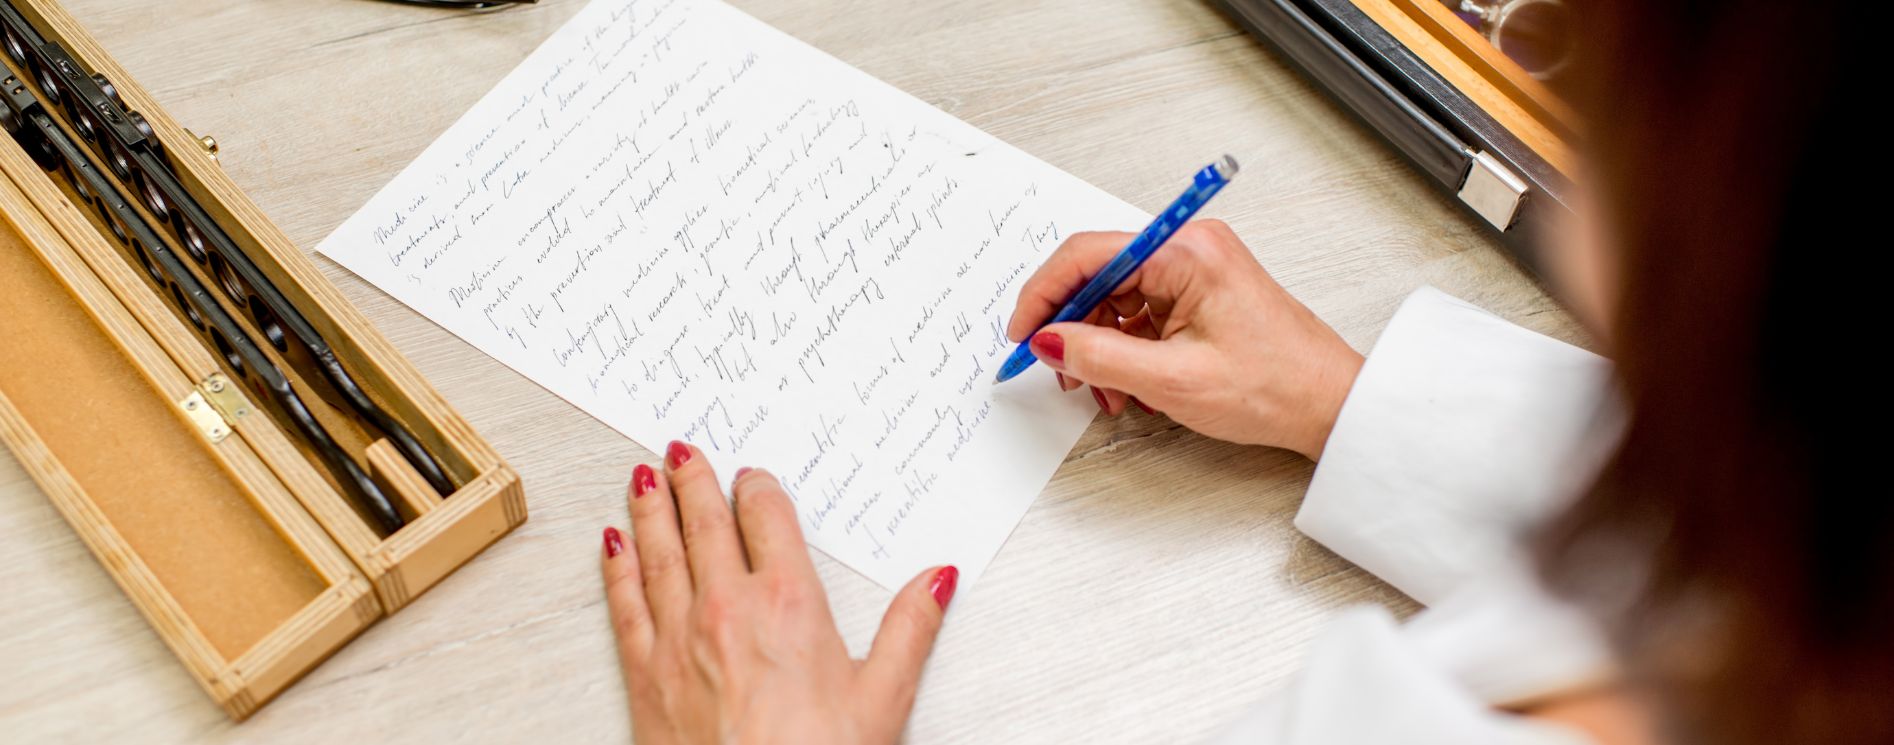 Medicine is a science and practice of the
treatment, and prevention of disease. The word
is derived from Latin medicus, meaning a physician
Medicine encompasses a variety of health care
practices evolved to maintain and restore health
by the prevention and treatment of illness.
Contemporary medicine applies biomedical sciences,
biomedical research, genetic, medical technology
to diagnose, treat and prevent injury and
disease, typically through pharmaceuticals or
but also through therapies as
diverse as psychotherapy external splints
forms of medicine are now known as
traditional medicine and folk medicine. They
remain commonly used with
of scientific medicine.